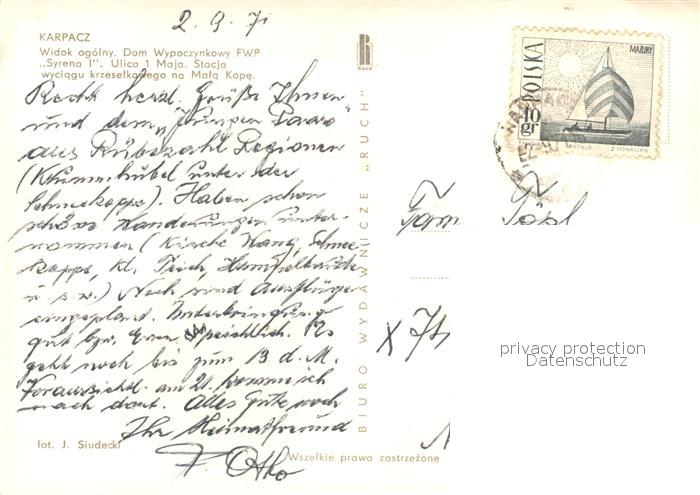 2. 9. 71
KARPACZ
Widok ogólny. Dom Wypoczynkowy FWP
„Syrena I". Ulica 1 Maja. Stacja
wyciągu krzesełkowego na Małą Kopę.
Recht herzl. Grüße Ihnen
und dem „jungen Paar"
aus Rübezahl Regionen
(Krummhübel unter der
Schneekoppe). Haben schon
schöne Wanderungen unter-
nommen (Kirche Wang, Schnee-
koppe, Kl. Teich, Hampelbaude
u. s. w.) Noch sind Ausflüge
eingeplant. Unterbringung
gut bzw. Essen reichlich. Es
geht noch bis zum 13. d. M.
Voraussichtl. am 21. komme ich
nach dort. Alles Gute noch
Ihr Heimatfreund
F. Otto
fot. J. Siudecki
Wszelkie prawa zastrzeżone
BIURO WYDAWNICZE „RUCH"
RUCH
POLSKA
MAZURY
10
gr
Fam.
X
privacy protection
Datenschutz